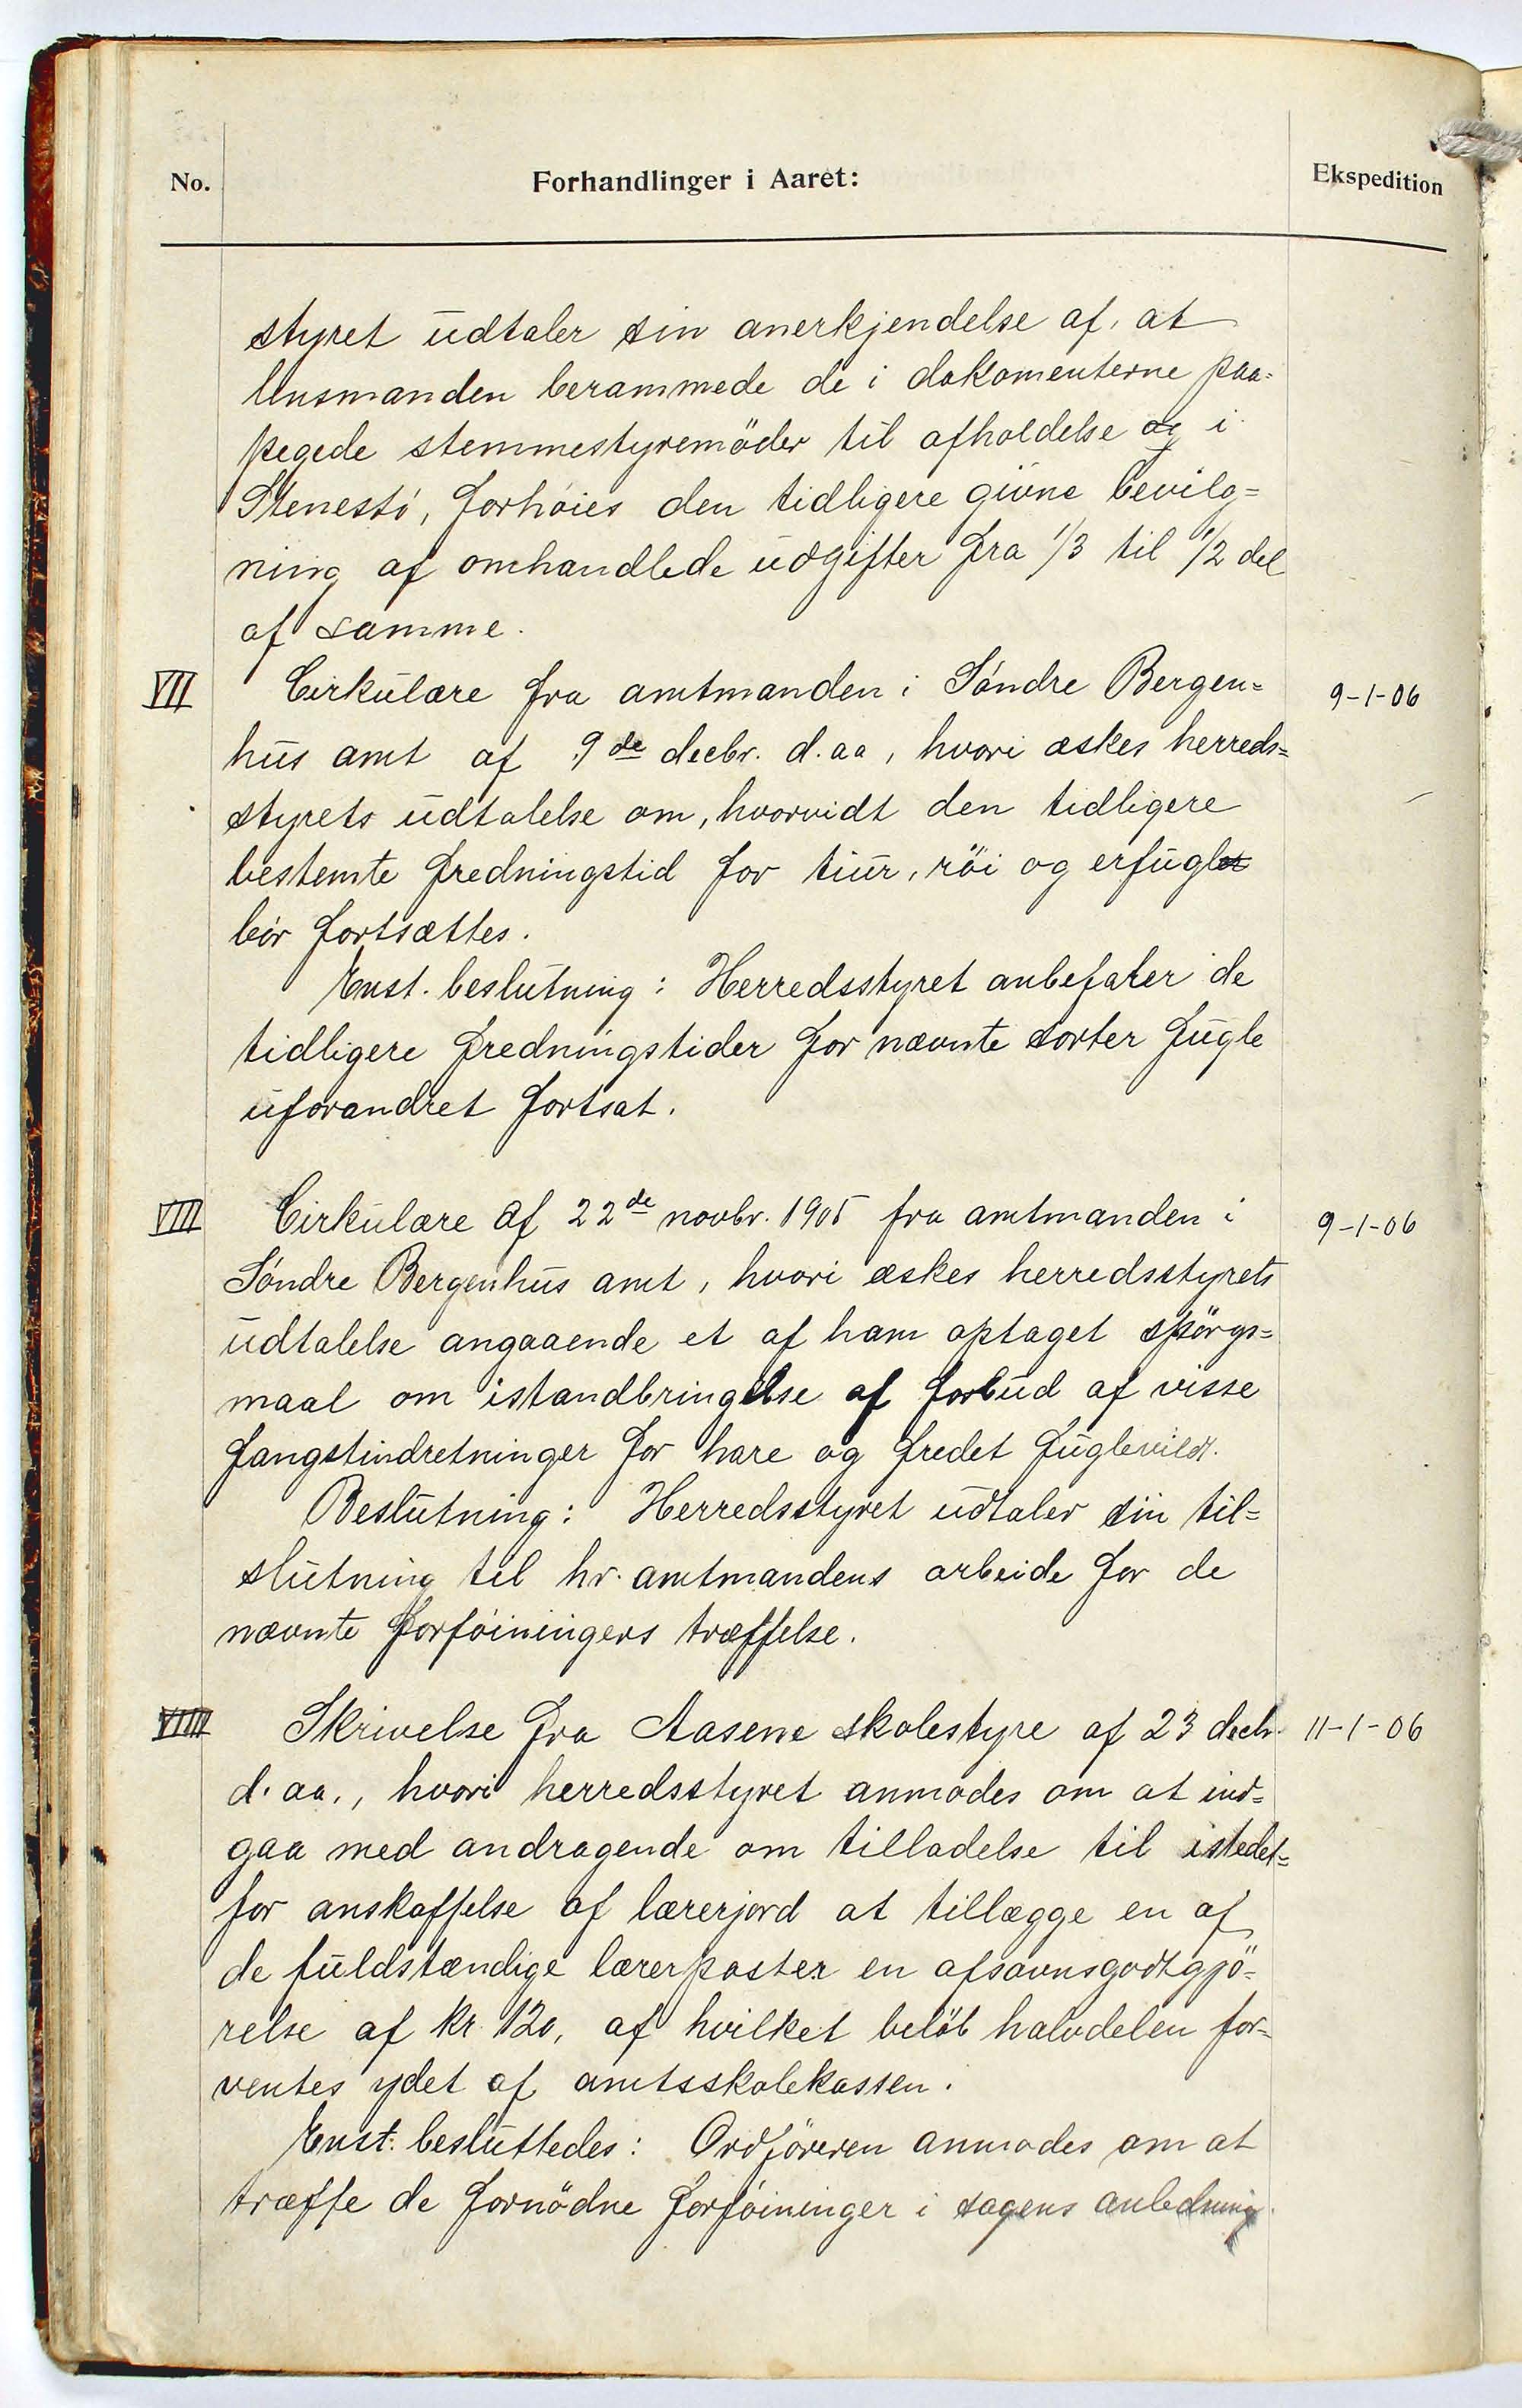 No.
Forhandlinger i Aaret:
Ekspedition
styret udtaler sin anerkjendelse af, at
lensmanden berammede de i dokomenterne paa=
pegede stemmestyremöder til afholdelse og i
Stenestö, forhöies den tidligere givne bevilg=
ning af omhandlede udgifter fra 1/3 til 1/2 del
af samme.
VII Cirkulære fra amtmanden i Söndre Bergen= 9-1-06
hus amt af 9de decbr. d. aa, hvori æskes herreds=
styrets udtalelse om, hvorvidt den tidligere
bestemte fredningstid for tiur, röi og erfugl
bör fortsættes.
Enst. beslutning: Herredsstyret anbefaler de
tidligere fredningstider for nævnte sorter fugle
uforandret fortsat.
VIII Cirkulære af 22de novbr. 1905 fra amtmanden i 9-1-06
Söndre Bergenhus amt, hvori æskes herredsstyrets
udtalelse angaaende et af ham optaget spörgs=
maal om istandbringelse af forbud af visse
fangstindretninger for hare og fredet fuglevildt.
Beslutning: Herredsstyret udtaler sin til=
slutning til hr. amtmandens arbeide for de
nævnte forföiningers træffelse.
VIIII Skrivelse fra Aasene skolestyre af 23 decbr. 11-1-06
d. aa., hvori herredsstyret anmodes om at ind=
gaa med andragende om tilladelse til istedet=
for anskaffelse af lærerjord at tillægge en af
de fuldstændige lærerposter en afsavnsgodtgjö=
relse af kr. 120, af hvilket belöb halvdelen for=
ventes ydet af amtsskolekassen.
Enst. besluttedes: Ordföreren anmodes om at
træffe de fornödne forföininger i sagens anledning.